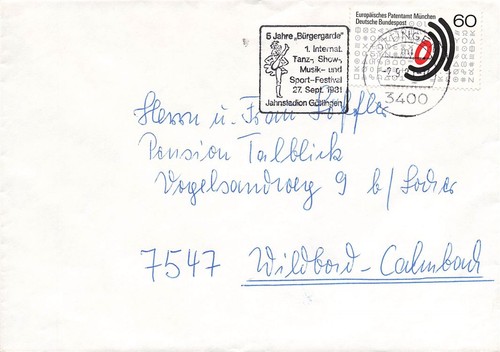 5 Jahre „Bürgergarde"
1. Internat.
Tanz-, Show-,
Musik- und
Sport-Festival
27. Sept. 1981
Jahnstadion Göttingen
Europäisches Patentamt München
Deutsche Bundespost
60
3400
Herrn u. Frau
Pension Talblick
Vogelsandweg 9 b/
7547 Wildbad-Calmbach